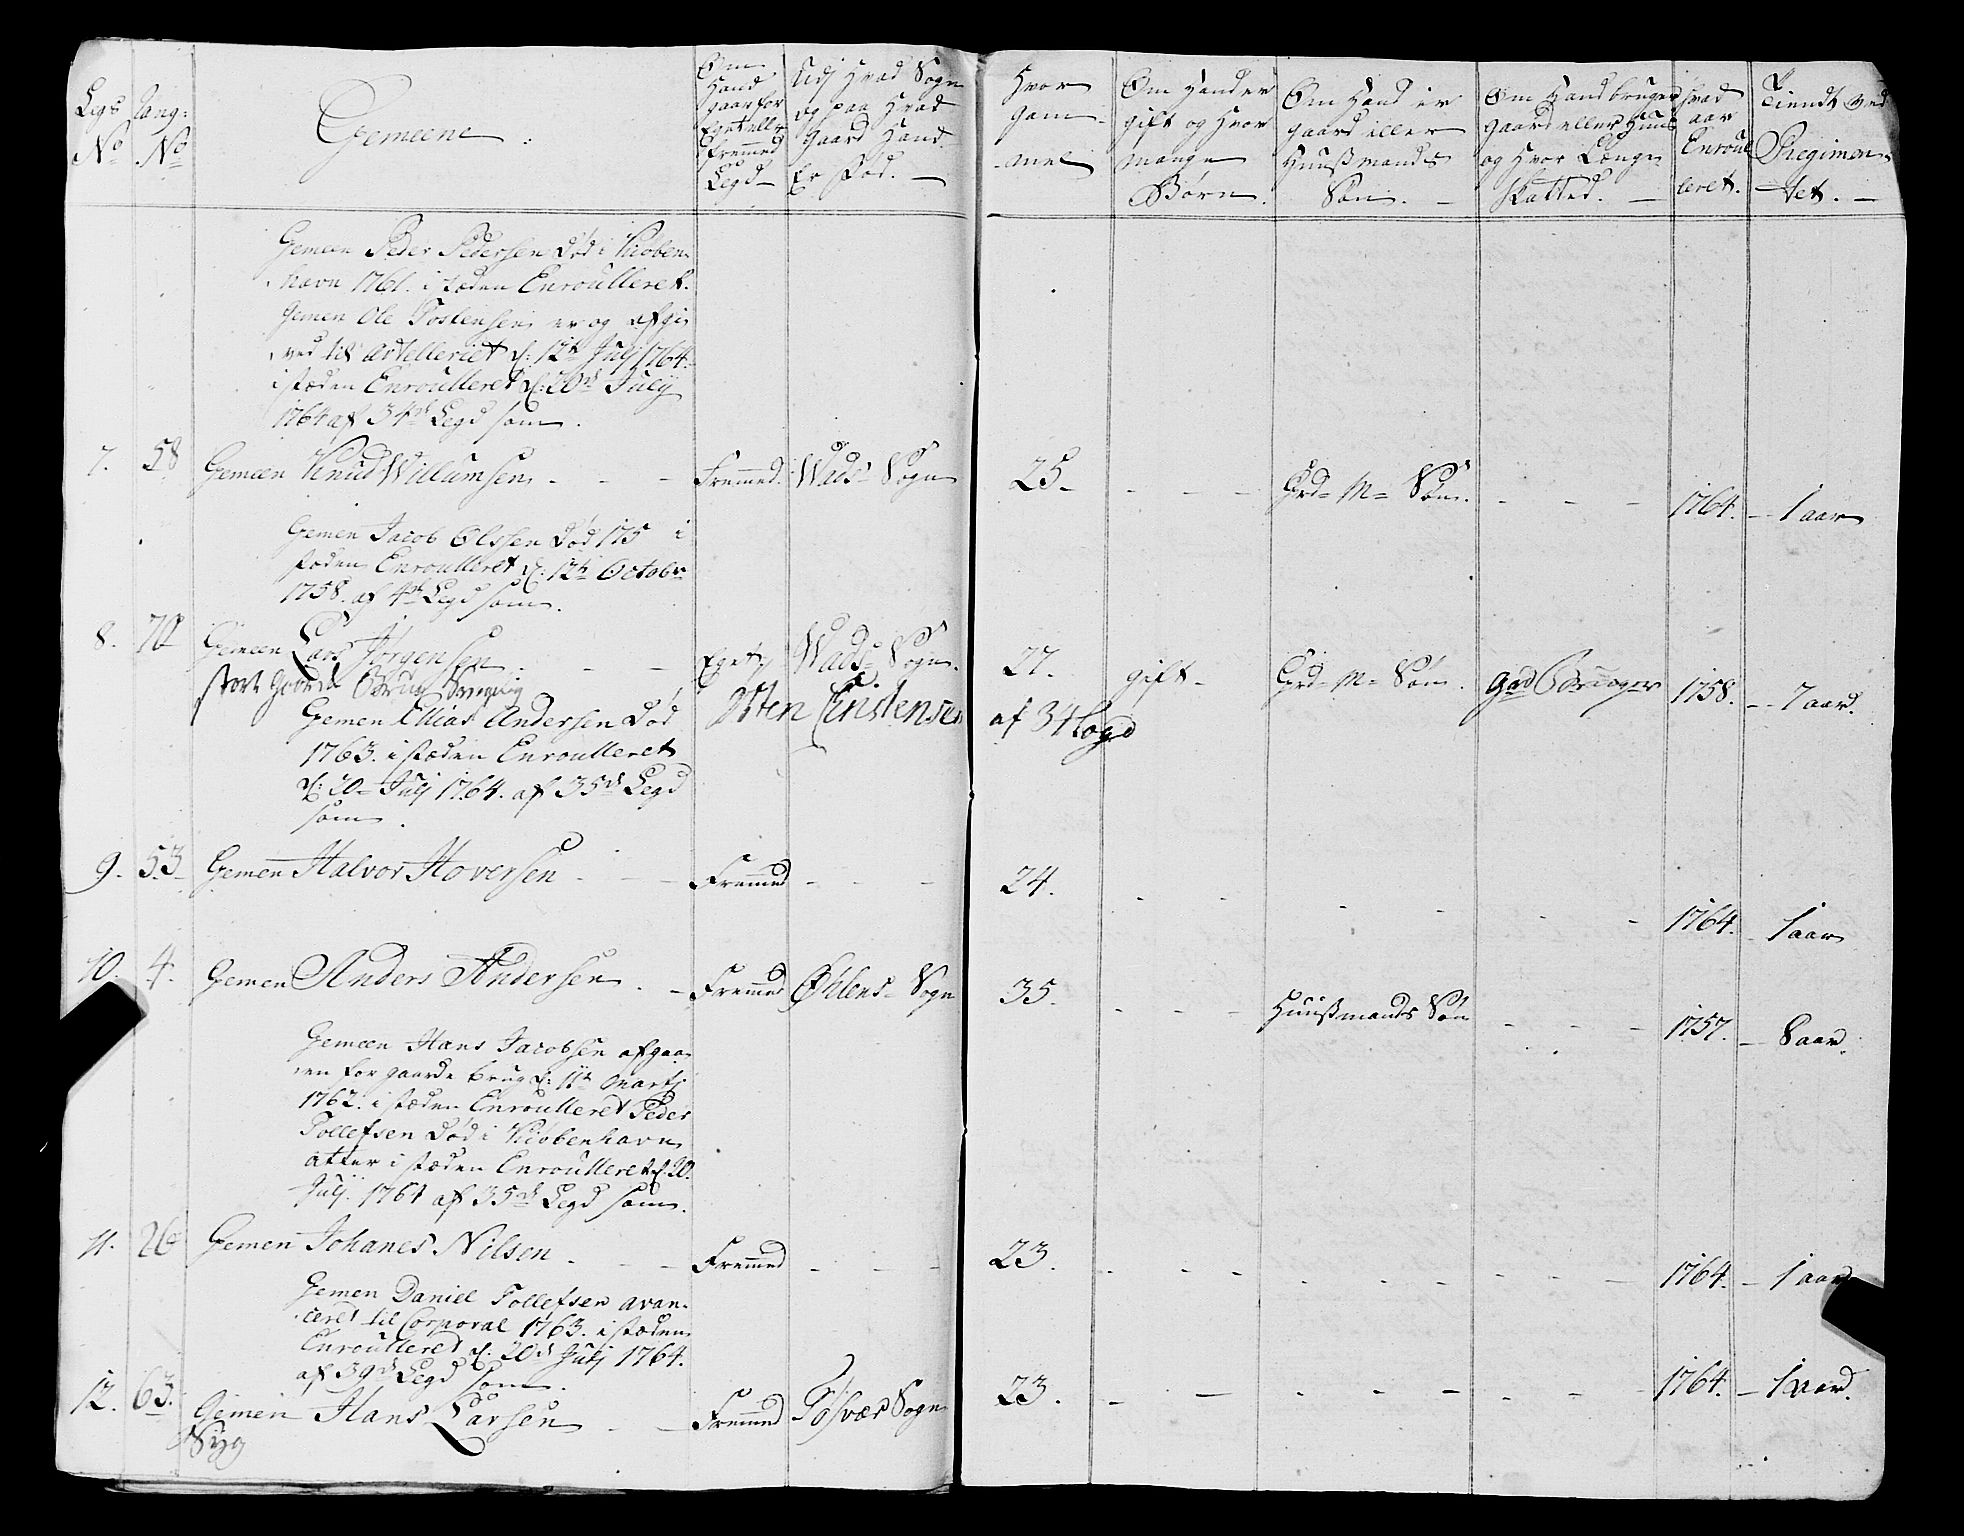 Legs No
Rang: No
Gemeene
Om Hand gaar for Eget eller fremmed Legd
Udj Hvad Sogn og paa Hvad Gaard Hand Er Fød.
Hvor gammel
Om Hand er gift og Hvor mange Børn
Om Hand er gaard eller Huusmands Søn.
Om Hand bruger Gaard eller Huus og Hvor Længe Skatted.
Hvad aar Enroulleret.
Tiendt ved Regimentet.
Gemeen Peder Pedersen Død i Kiøben
havn 1761. i stæden Enroulleret
Gemen Ole Tostensen er og afgi
ved til Artelleriet d: 12te Julj 1764
i stæden Enroulleret d: 20de July
1764 af 34de Legd som
7. 58 Gemeen Knud Willumsen - - Fremmed. Wads Sogn 25 - - - Grd= M= Søn. - - - 1764. - 1 aar
Gemen Jacob Olssen Død 175 i
stæden Enroulleret d: 12te Octobr
1758. af 4de Legd som
8. 70 Gemeen Lars Jørgensen - - Eget Wads Sogn. 27. gift - Grd= M= Søn. Grd Bruger 1758. - 7 aar.
Gaards Brug
Gemen Elias Andersen Død
Otten Cirstensen af 34 Legd
1763. i stæden Enroulleret
d: 20 Julj 1764. af 35de Legd
som
9. 53 Gemen Halvor Hoversen - - Fremmed - - - 24. - - - - - - 1764. - 1 aar
10. 4. Gemen Anders Andersen. - Fremmed Øhlens Sogn 35. - - - Huusmands Søn - - - 1757. - 8 aar.
Gemeen Hans Jacobsen afgaa
en for gaarde brug d: 11te Martj
1762. i stæden Enroulleret Peder
Tollefsen Død i Kiøbenhavn
atter i stæden Enroulleret d. 20.
Julj. 1764 af 35de Legd som.
11. 26 Gemen Johanes Nilsen. - - Fremmed - - - 23. - - - - - - - - 1764. - 1 aar
Gemen Daniel Tollefsen avan-
ceret til Corporal 1763. i stæden
Enroulleret d. 20de Julj 1764.
af 39de Legd som.
12. 63. Gemen Hans Larsen - - Fremmed Tøsvær Sogn 23. - - - - - - - 1764. - 1 aar.
Syg